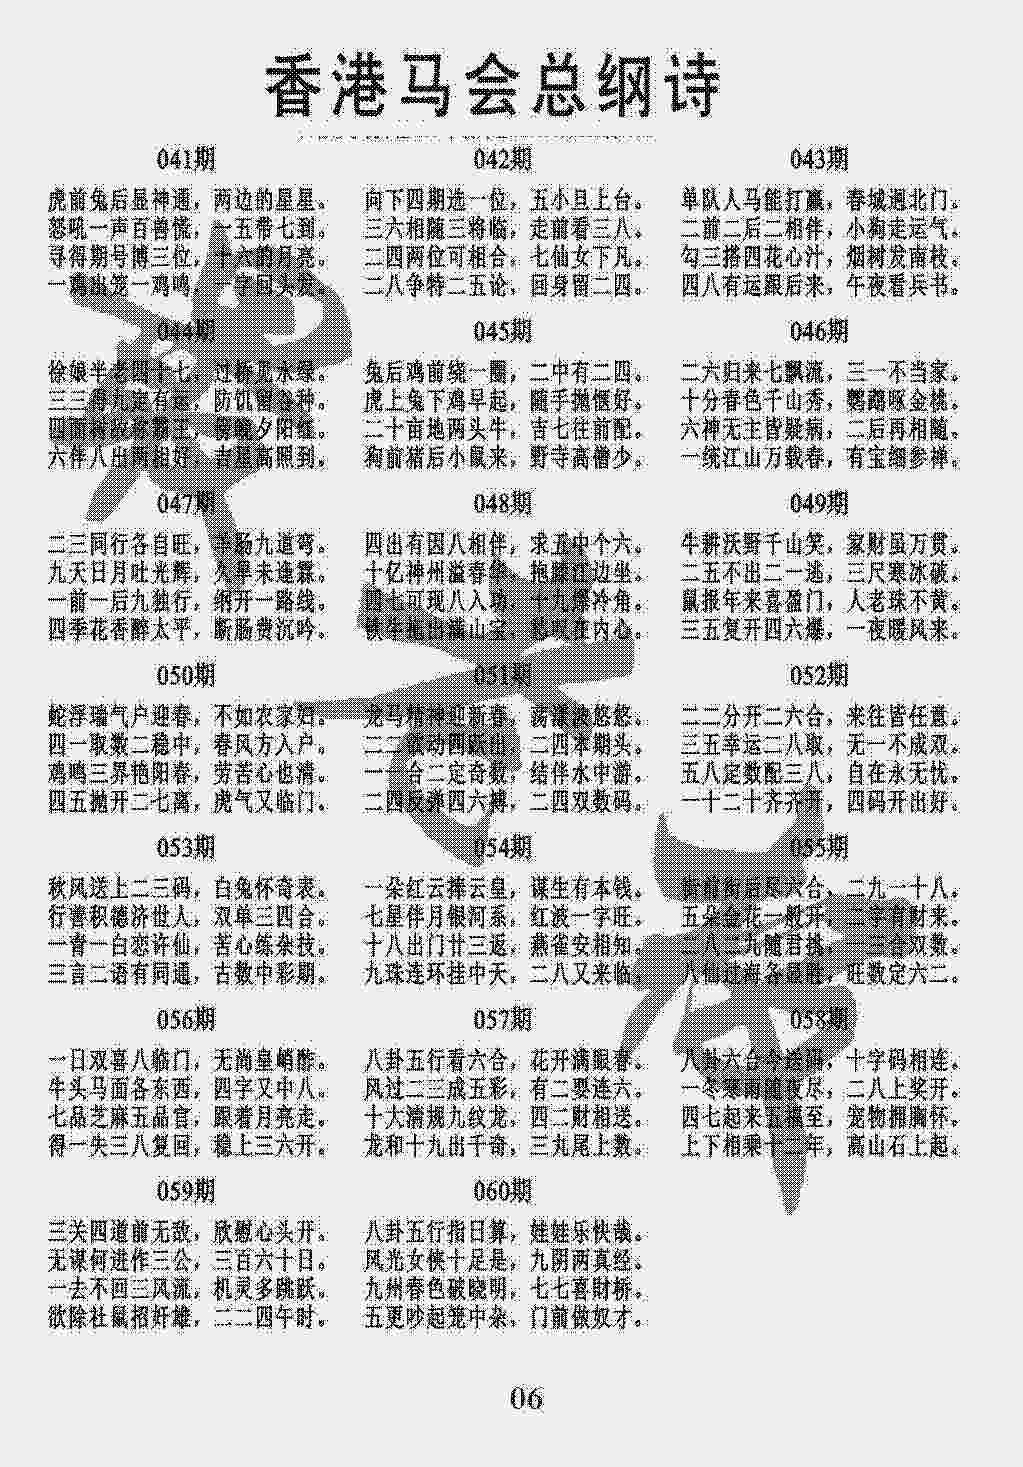 香港马会总纲诗
041期
虎前兔后显神通，两边的星星。
怒吼一声百兽慌，一五带七到。
寻得期号博三位，十六的月亮。
一鸡出笼一鸡鸣，一字回头发。
042期
向下四期选一位，五小旦上台。
三六相随三将临，走前看三八。
二四两位可相合，七仙女下凡。
二八争特二五论，回身留二四。
043期
单队人马能打赢，春城遇北门。
二前二后二相伴，小狗走运气。
勾三搭四花心汁，烟树发南枝。
四八有运跟后来，午夜看兵书。
044期
徐娘半老四十七，过桥见水绿。
三三得九定有运，防饥留谷种。
四面楚歌称霸王，傍晚夕阳红。
六伴八出两相好，吉星高照到。
045期
兔后鸡前绕一圈，二中有二四。
虎上兔下鸡早起，随手抛惬好。
二十亩地两头牛，吉七往前配。
狗前猪后小鼠来，野寺高僧少。
046期
二六归来七飘流，三一不当家。
十分春色千山秀，鹦鹉啄金桃。
六神无主皆疑病，二后再相随。
一统江山万载春，有宝细参禅。
047期
二三同行各自旺，羊肠九道弯。
九天日月吐光辉，久旱未逢霖。
一前一后九独行，纲开一路线。
四季花香醉太平，断肠费沉吟。
048期
四出有因八相伴，求五中个六。
十亿神州溢春华，抱膝江边坐。
四七可现八入功，十九爆冷角。
铁牛地出满山宝，愁叹在内心。
049期
牛耕沃野千山笑，家财虽万贯。
二五不出二一逃，三尺寒冰破。
鼠报年来喜盈门，人老珠不黄。
三五复开四六爆，一夜暖风来。
050期
蛇浮瑞气户迎春，不如农家妇。
四一取数二稳中，春风方入户。
鸡鸣三界艳阳春，劳苦心也清。
四五抛开二七离，虎气又临门。
051期
龙马精神迎新春，荡漾波悠悠。
二二欲动四跃出，二四本期头。
一一合二定奇数，结伴水中游。
二四反弹四六搏，二四双数码。
052期
二二分开二六合，来往皆任意。
三五幸运二八取，无一不成双。
五八定数配三八，自在永无忧。
一十二十齐齐开，四码开出好。
053期
秋风送上二三码，白兔怀奇衷。
行善积德济世人，双单三四合。
一青一白恋许仙，苦心练杂技。
三言二语有同通，古数中彩期。
054期
一朵红云捧云皇，谋生有本钱。
七星伴月银河系，红波一字旺。
十八出门廿三返，燕雀安相知。
九珠连环挂中天，二八又来临。
055期
街前街后尽六合，二九一十八。
五朵金花一般开，一字有财来。
一八二九随君挑，一一合双数。
八仙过海各显胜，旺数定六二。
056期
一日双喜八临门，无尚皇峭酢。
牛头马面各东西，四字又中八。
七品芝麻五品官，跟着月亮走。
得一失三八复回，稳上三六开。
057期
八卦五行看六合，花开满眼春。
风过二三成五彩，有二要连六。
十大清规九纹龙，四二财相送。
龙和十九出千奇，三九尾上数。
058期
八卦六合会逐阳，十字码相连。
一冬寒雨随夜尽，二八上奖开。
四七起来五福至，宠物拥胸怀。
上下相乘十二年，高山石上起。
059期
三关四道前无敌，欣慰心头开。
无谋何进作三公，三百六十日。
一去不回三风流，机灵多跳跃。
欲除社鼠招奸雄，二二四午时。
060期
八卦五行指日算，娃娃乐快哉。
风光女侠十足是，九阴两真经。
九州春色破晓明，七七喜财桥。
五更吵起笼中杂，门前做奴才。
06